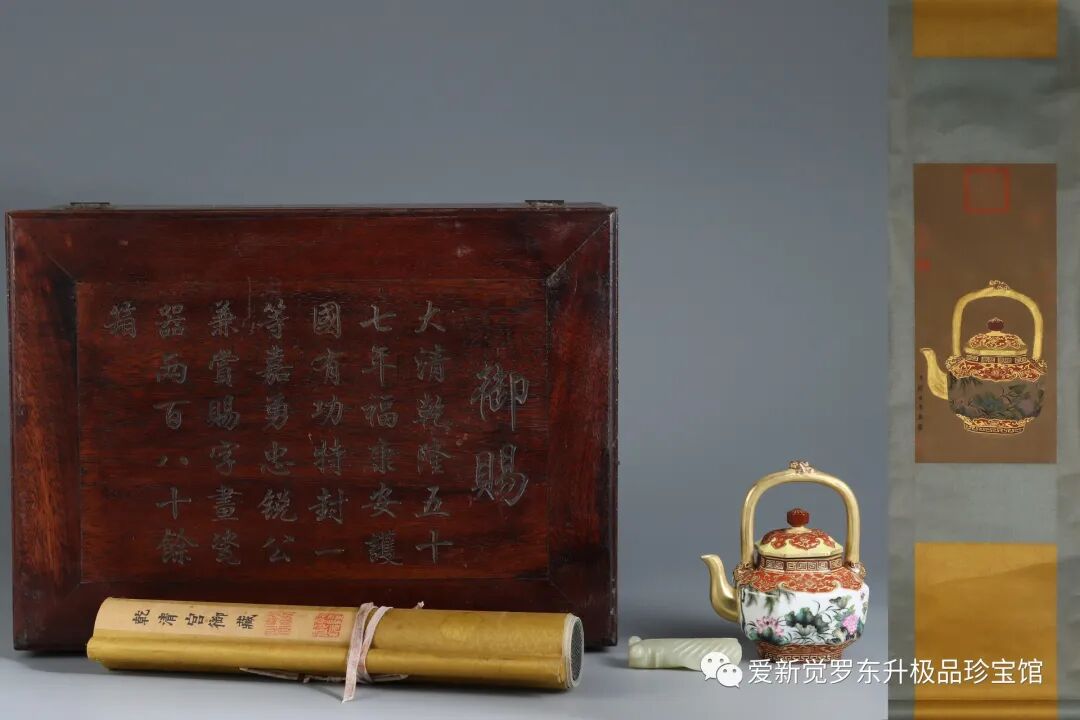 御賜
大清乾隆五十
七年福康安護
國有功特封一
等嘉勇忠銳公
兼賞賜字畫瓷
器兩百八十餘
箱
乾清宮御藏
爱新觉罗东升极品珍宝馆